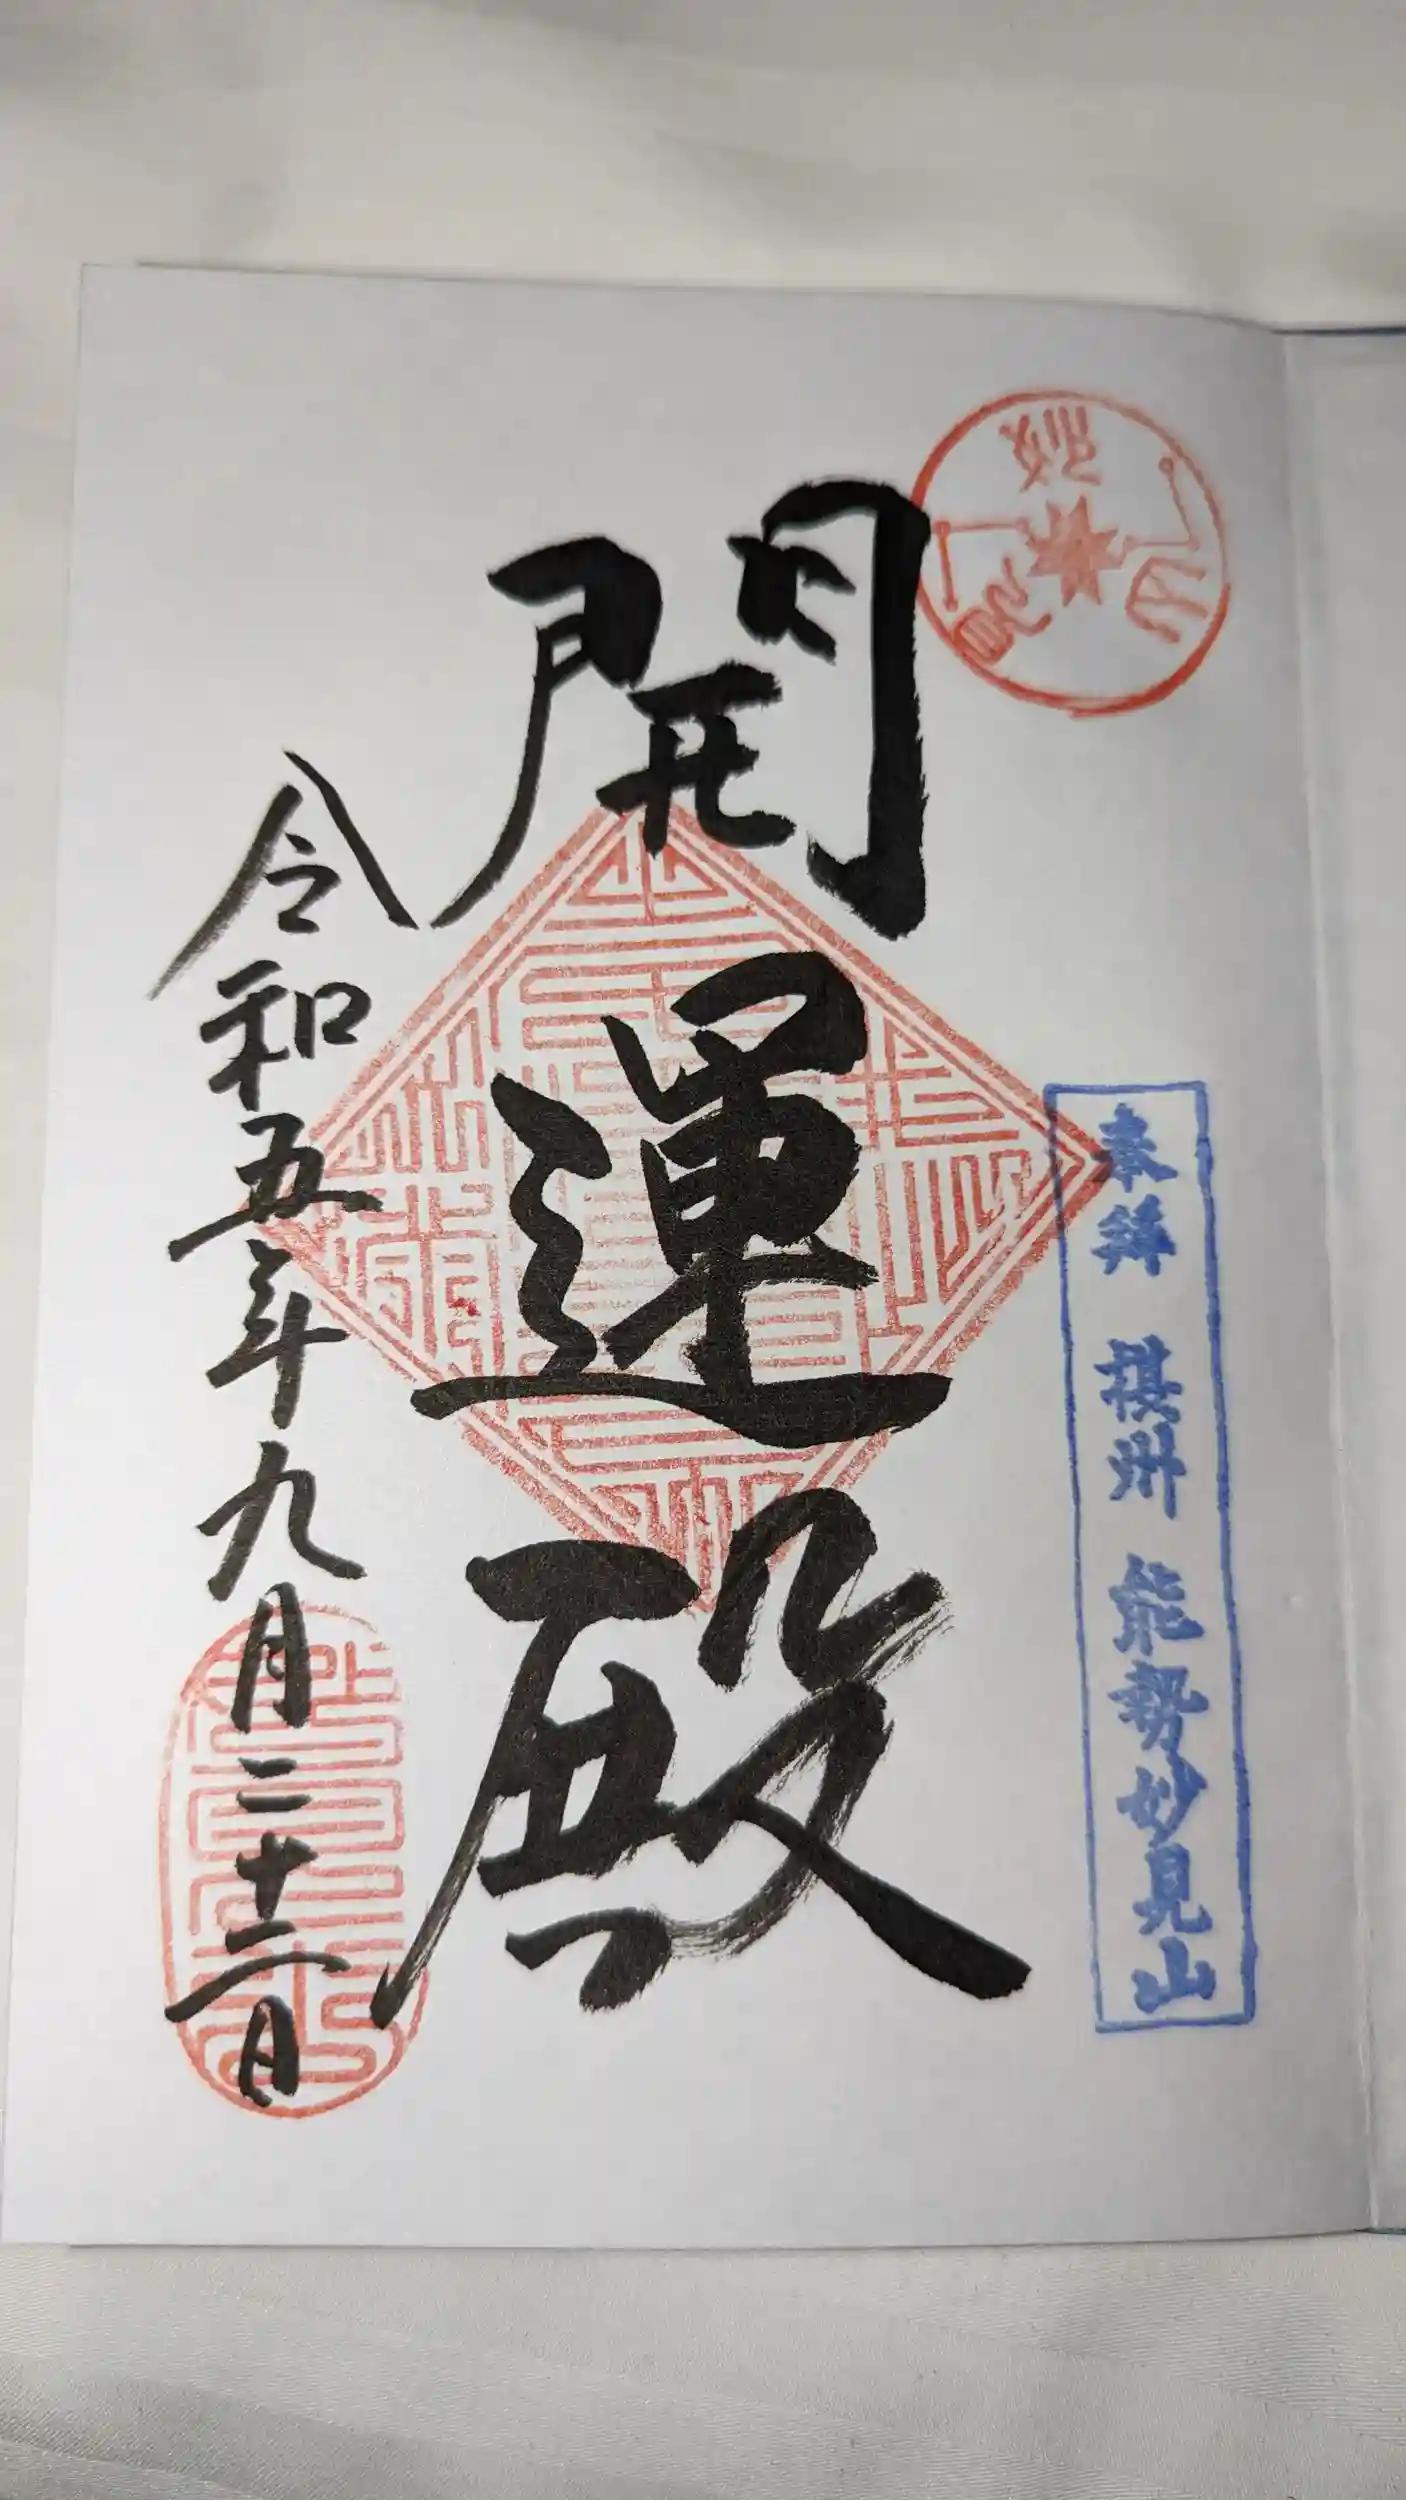 奉拝 摂州 能勢妙見山
妙見山
開運殿
令和五年九月二十二日